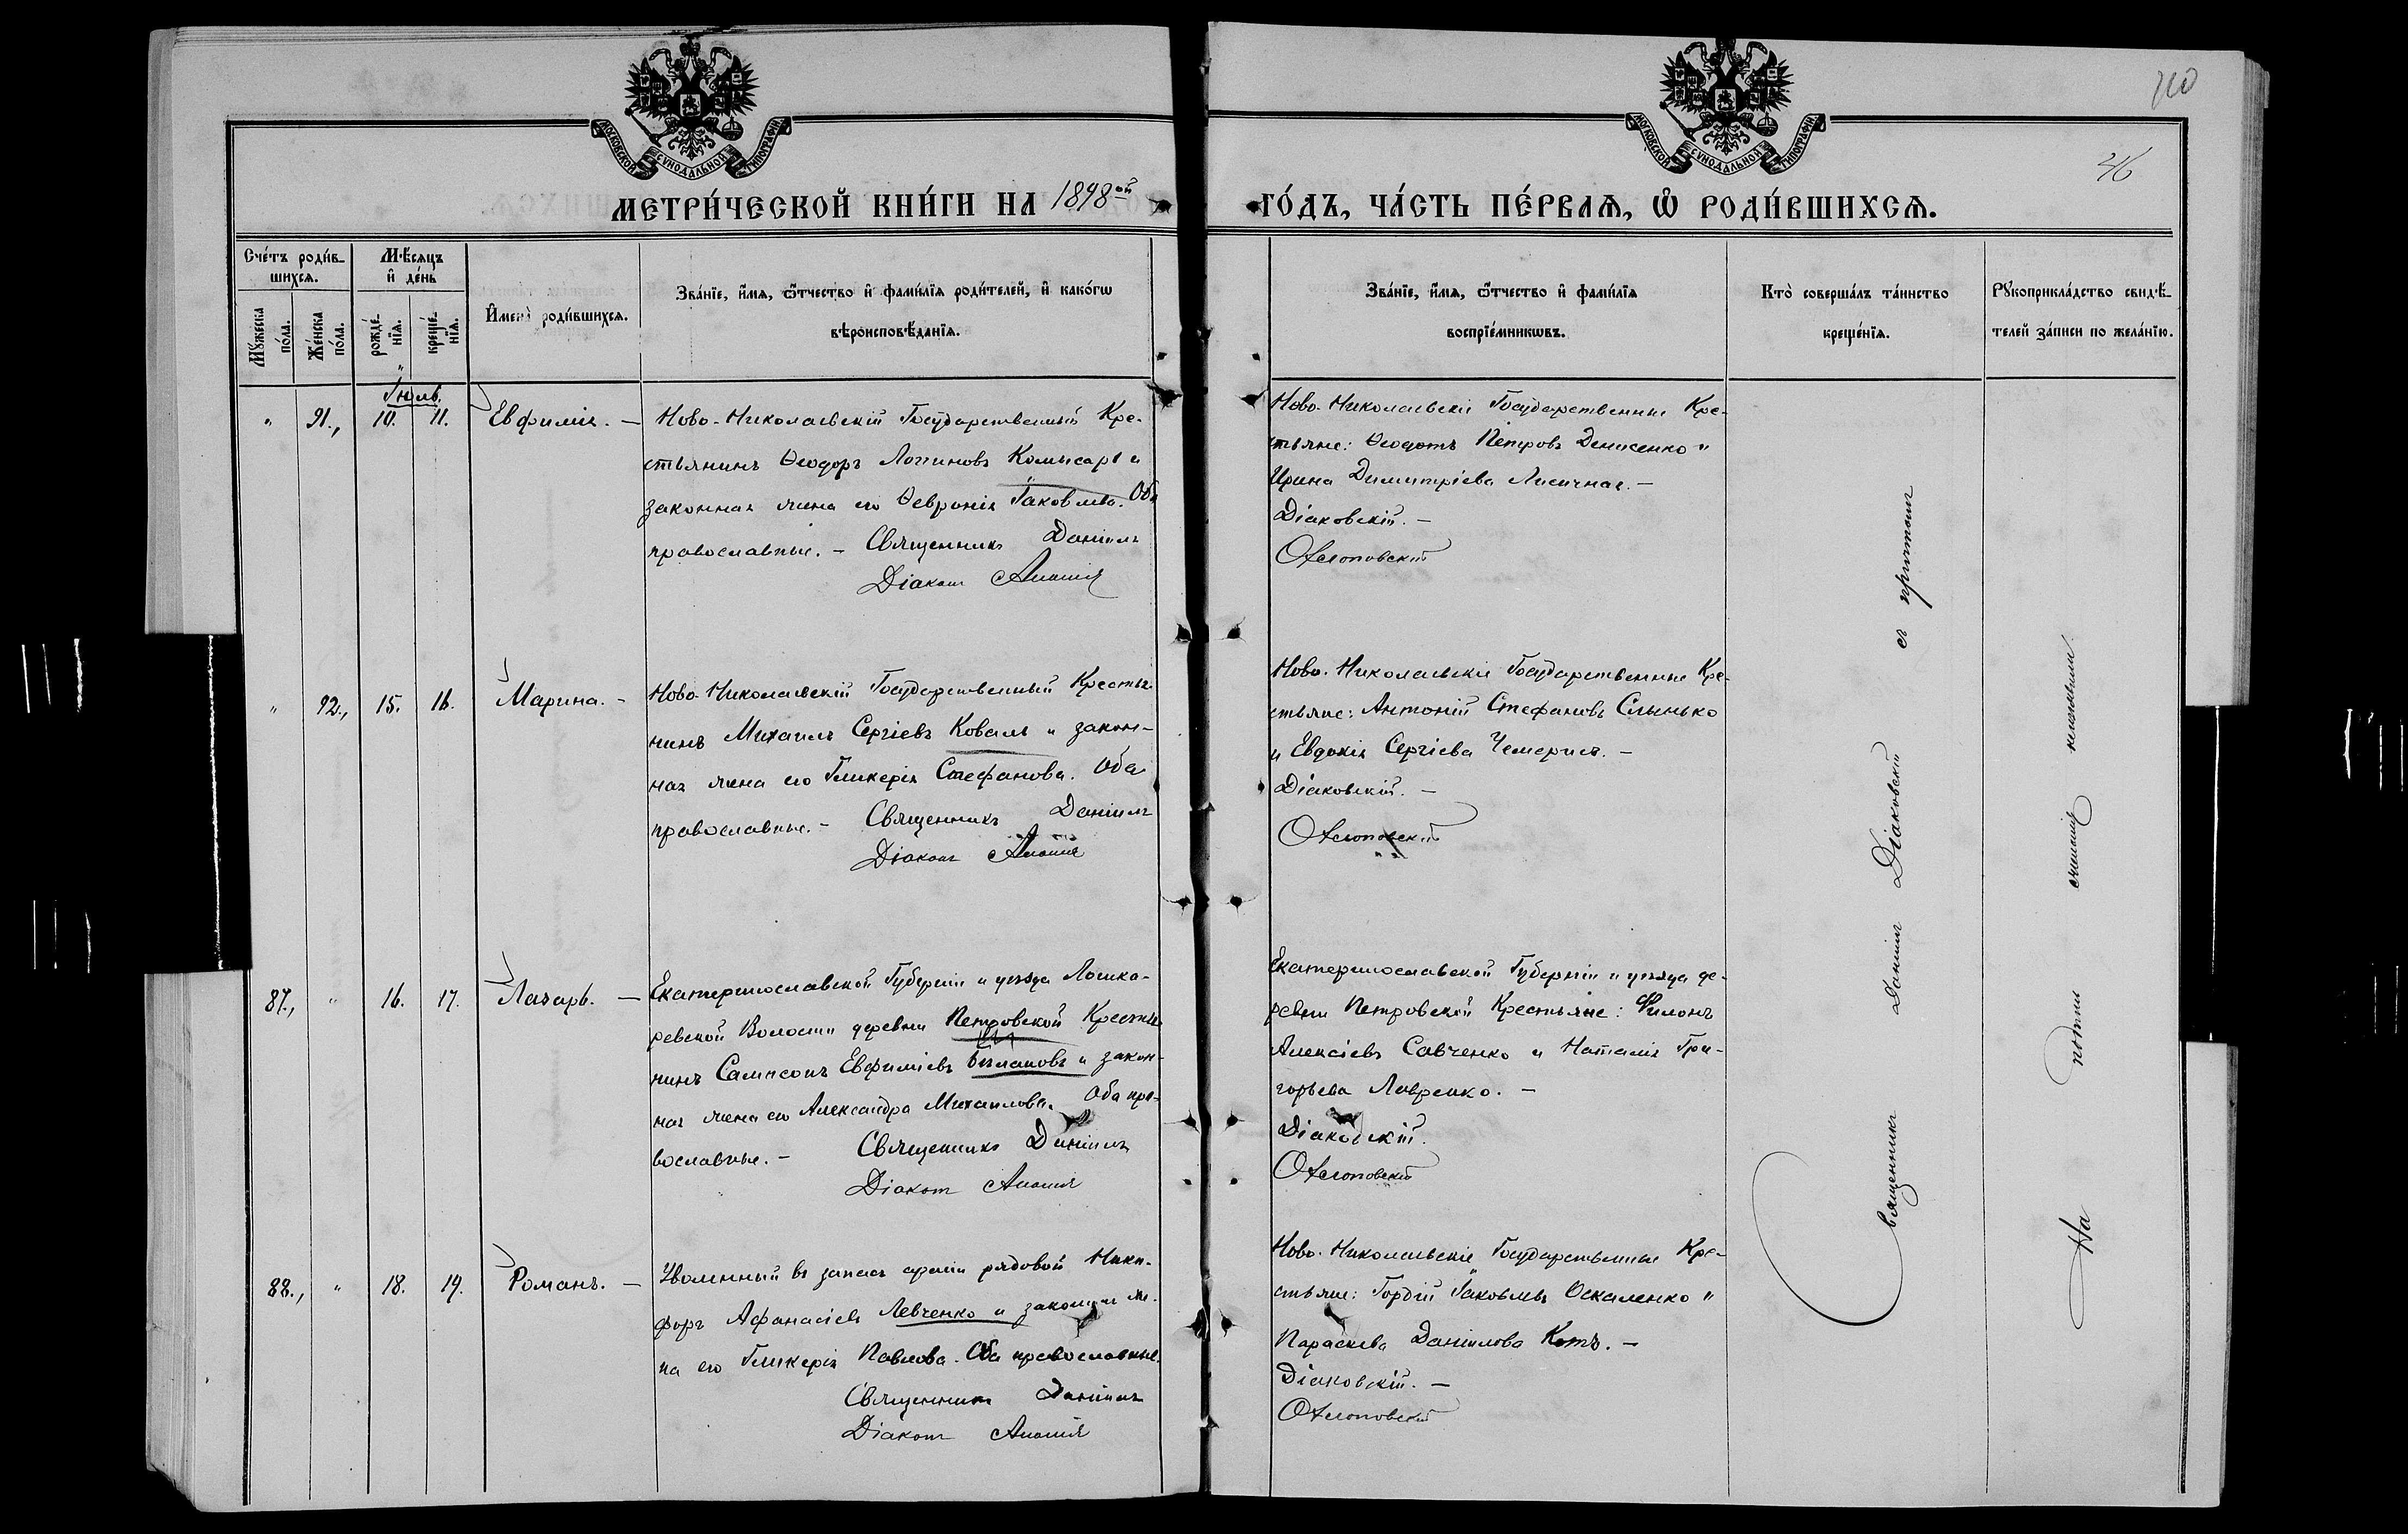 110
46
МОСКОВСКОЙ СѴНОДАЛЬНОЙ ТИПОГРАФІИ
МОСКОВСКОЙ СѴНОДАЛЬНОЙ ТИПОГРАФІИ
МЕТРИ́ЧЕСКОЙ КНИ́ГИ НА 1898ой ГО́ДЪ, ЧА́СТЬ ПЕ́РВАѦ, Ѡ РОДИ́ВШИХСѦ.
Сче́тъ роди́в-
шихсѧ.
Мꙋ́жеска по́ла.
Же́нска по́ла.
Мѣ́сѧцъ
и҆ де́нь
рожде́-
нїѧ.
креще́-
нїѧ.
И҆мена̀ роди́вшихсѧ.
Зва́нїе, и҆́мѧ, ѻ҆́тчество и҆ фами́лїѧ роди́телей, и҆ како́гѡ
вѣроисповѣ́данїѧ.
Зва́нїе, и҆́мѧ, ѻ҆́тчество и҆ фами́лїѧ
воспрїе́мникѡвъ.
Кто̀ соверша́лъ та́инство
креще́нїѧ.
Рꙋкоприкла́дство свидѣ́-
телей за́писи по жела́нїю.
Іюль.
" 91., 10. 11. Евфимія. —
Ново-Николаевскій Государственный Кре-
стьянинъ Ѳеодоръ Логиновъ Комисаръ и
законная жена его Ѳевронія Іаковлева. Оба
православные. – Священникъ Даніилъ
Діаконъ Ананія
Ново-Николаевскіе Государственные Кре-
стьяне: Ѳеодотъ Петровъ Денисенко и
Ирина Димитріева Лисичная. —
Діаковскій. —
" 92., 15. 16. Марина. –
Ново-Николаевскій Государственный Крестья-
нинъ Михаилъ Сергіевъ Коваль и закон-
ная жена его Гликерія Стефанова. Оба
православные. – Священникъ Даніилъ
Діаконъ Ананія
Ново-Николаевскіе Государственные Кре-
стьяне: Антоній Стефановъ Слынько
и Евдокія Сергіева Чемерисъ. —
Діаковскій. —
87., " 16. 17. Лазарь. —
Екатеринославской Губерніи и уѣзда Лошка-
ревской Волости деревни Петровской Крестья-
нинъ Сампсонъ Евфиміевъ и закон-
ная жена его Александра Михаилова. Оба пра-
вославные. – Священникъ Даніилъ
Діаконъ Ананія
Екатеринославской Губерніи и уѣзда де-
ревни Петровской Крестьяне: Филонъ
Алексіевъ Савченко и Наталія Гри-
горьева Лавренко. —
Діаковскій.
88., " 18. 19. Романъ. —
Уволенный въ запасъ арміи рядовой Ники-
форъ Афанасіевъ Левченко и законная же-
на его Гликерія Павлова. Оба православные.
Священникъ Даніилъ
Діаконъ Ананія
Ново-Николаевскіе Государственные Кре-
стьяне: Гордій Іаковлевъ Оскаленко и
Параскева Даніилова Котъ. —
Діаковскій. —
Священникъ Даніилъ Діаковскій съ причтомъ
На подпись нежелали